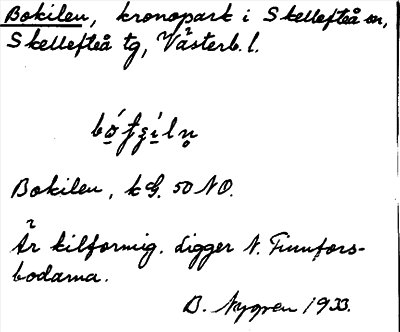 Bokilen, kronopark i Skellefteå sn,
Skellefteå tg, Västerb. l.
Bokilen, kG. 50 NO.
Är kilformig. Ligger N. Finnfors-
bodarna.
B. Nygren 1933.